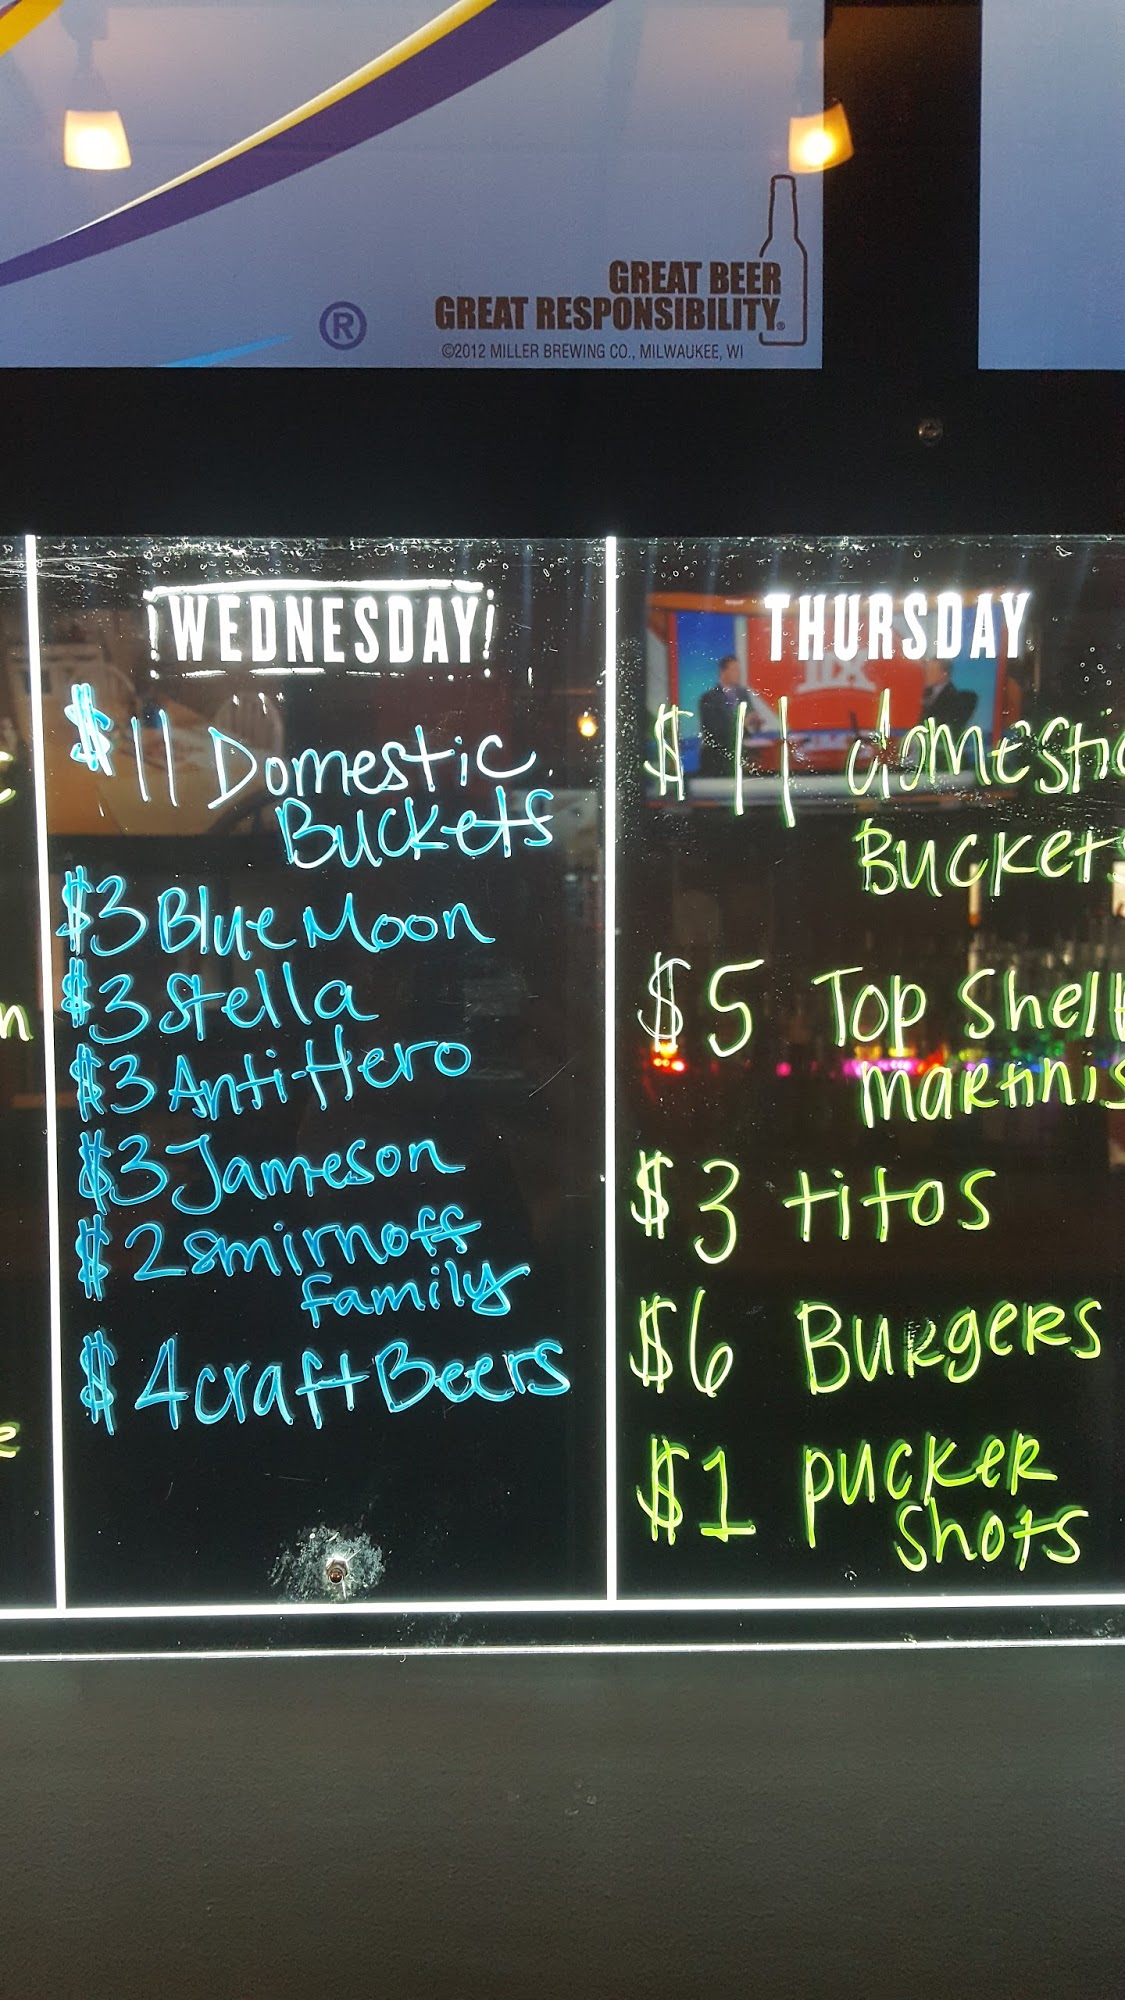 GREAT BEER
GREAT RESPONSIBILITY®
©2012 MILLER BREWING CO., MILWAUKEE, WI
®
WEDNESDAY
$11 Domestic
Buckets
$3 Blue Moon
$3 Stella
$3 Anti-Hero
$3 Jameson
$2 Smirnoff
family
$4 craft Beers
THURSDAY
$11 domestic
Buckets
$5 Top Shelf
martinis
$3 titos
$6 Burgers
$1 pucker
shots